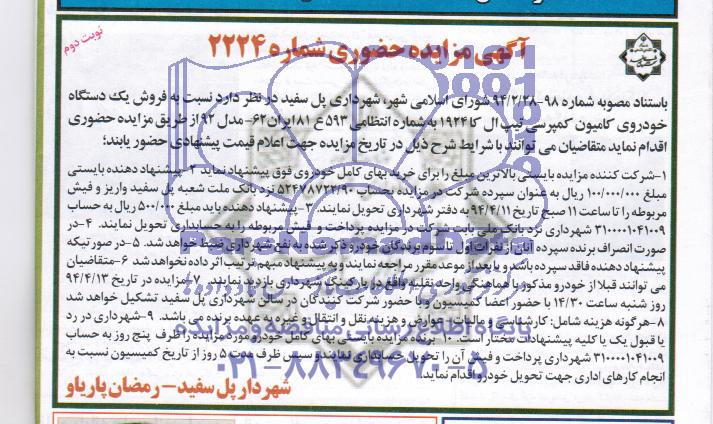 نوبت دوم
آگهی مزایده حضوری شماره ۲۲۲۴
باستناد مصوبه شماره ۹۸-۹۴/۲/۲۸ شورای اسلامی شهر، شهرداری پل سفید در نظر دارد نسبت به فروش یک دستگاه
خودروی کامیون کمپرسی تیپ ال کا ۱۹۲۴ به شماره انتظامی ۵۹۳ ع ۸۱ ایران ۶۲- مدل ۹۲ از طریق مزایده حضوری
اقدام نماید متقاضیان می توانند با شرایط شرح ذیل در تاریخ مزایده جهت اعلام قیمت پیشنهادی حضور یابند؛
۱-شرکت کننده مزایده بایستی بالاترین مبلغ را برای خرید بهای کامل خودروی فوق پیشنهاد نماید ۲-پیشنهاد دهنده بایستی
مبلغ ۱۰۰/۰۰۰/۰۰۰ ریال به عنوان سپرده شرکت در مزایده بحساب ۵۲۴۷۸۷۲۲/۹۰ نزد بانک ملت شعبه پل سفید واریز و فیش
مربوطه را تا ساعت ۱۱ صبح تاریخ ۹۴/۴/۱۱ به دفتر شهرداری تحویل نمایند. ۳-پیشنهاد دهنده باید مبلغ ۵۰۰/۰۰۰ ریال به حساب
۳۱۰۰۰۰۱۰۴۱۰۰۹ شهرداری نزد بانک ملی بابت شرکت در مزایده پرداخت و فیش مربوطه را به حسابداری تحویل نمایند. ۴-در
صورت انصراف برنده سپرده آنان از نفرات اول تا سوم برندگان خودرو ذکر شده به نفع شهرداری ضبط خواهد شد. ۵-در صورتیکه
پیشنهاد دهنده فاقد سپرده باشد و یا بعد از موعد مقرر مراجعه نمایند و به پیشنهاد مبهم ترتیب اثر داده نخواهد شد ۶-متقاضیان
می توانند قبلا از خودرو مذکور با هماهنگی واحد نقلیه واقع در پارکینگ شهرداری بازدید نمایند. ۷-مزایده در تاریخ ۹۴/۴/۱۳
روز شنبه ساعت ۱۴/۳۰ با حضور اعضا کمیسیون و با حضور شرکت کنندگان در سالن شهرداری پل سفید تشکیل خواهد شد
۸-هر گونه هزینه شامل: کارشناسی و مالیات و عوارض و هزینه نقل و انتقال و غیره به عهده برنده می باشد. ۹-شهرداری در رد
یا قبول یک یا کلیه پیشنهادات مختار است. ۱۰-برنده مزایده بایستی بهای کامل خودرو مورد مزایده را ظرف پنج روز به حساب
۳۱۰۰۰۰۱۰۴۱۰۰۹ شهرداری پرداخت و فیش آن را تحویل حسابداری نمایند و سپس ظرف مدت ۵ روز از تاریخ کمیسیون نسبت به
انجام کارهای اداری جهت تحویل خودرو اقدام نماید.
پایگاه اطلاع رسانی مناقصه و مزایده
۰۲۱-۸۸۳۴۹۶۷۰-۵
شهردار پل سفید – رمضان پاریاو